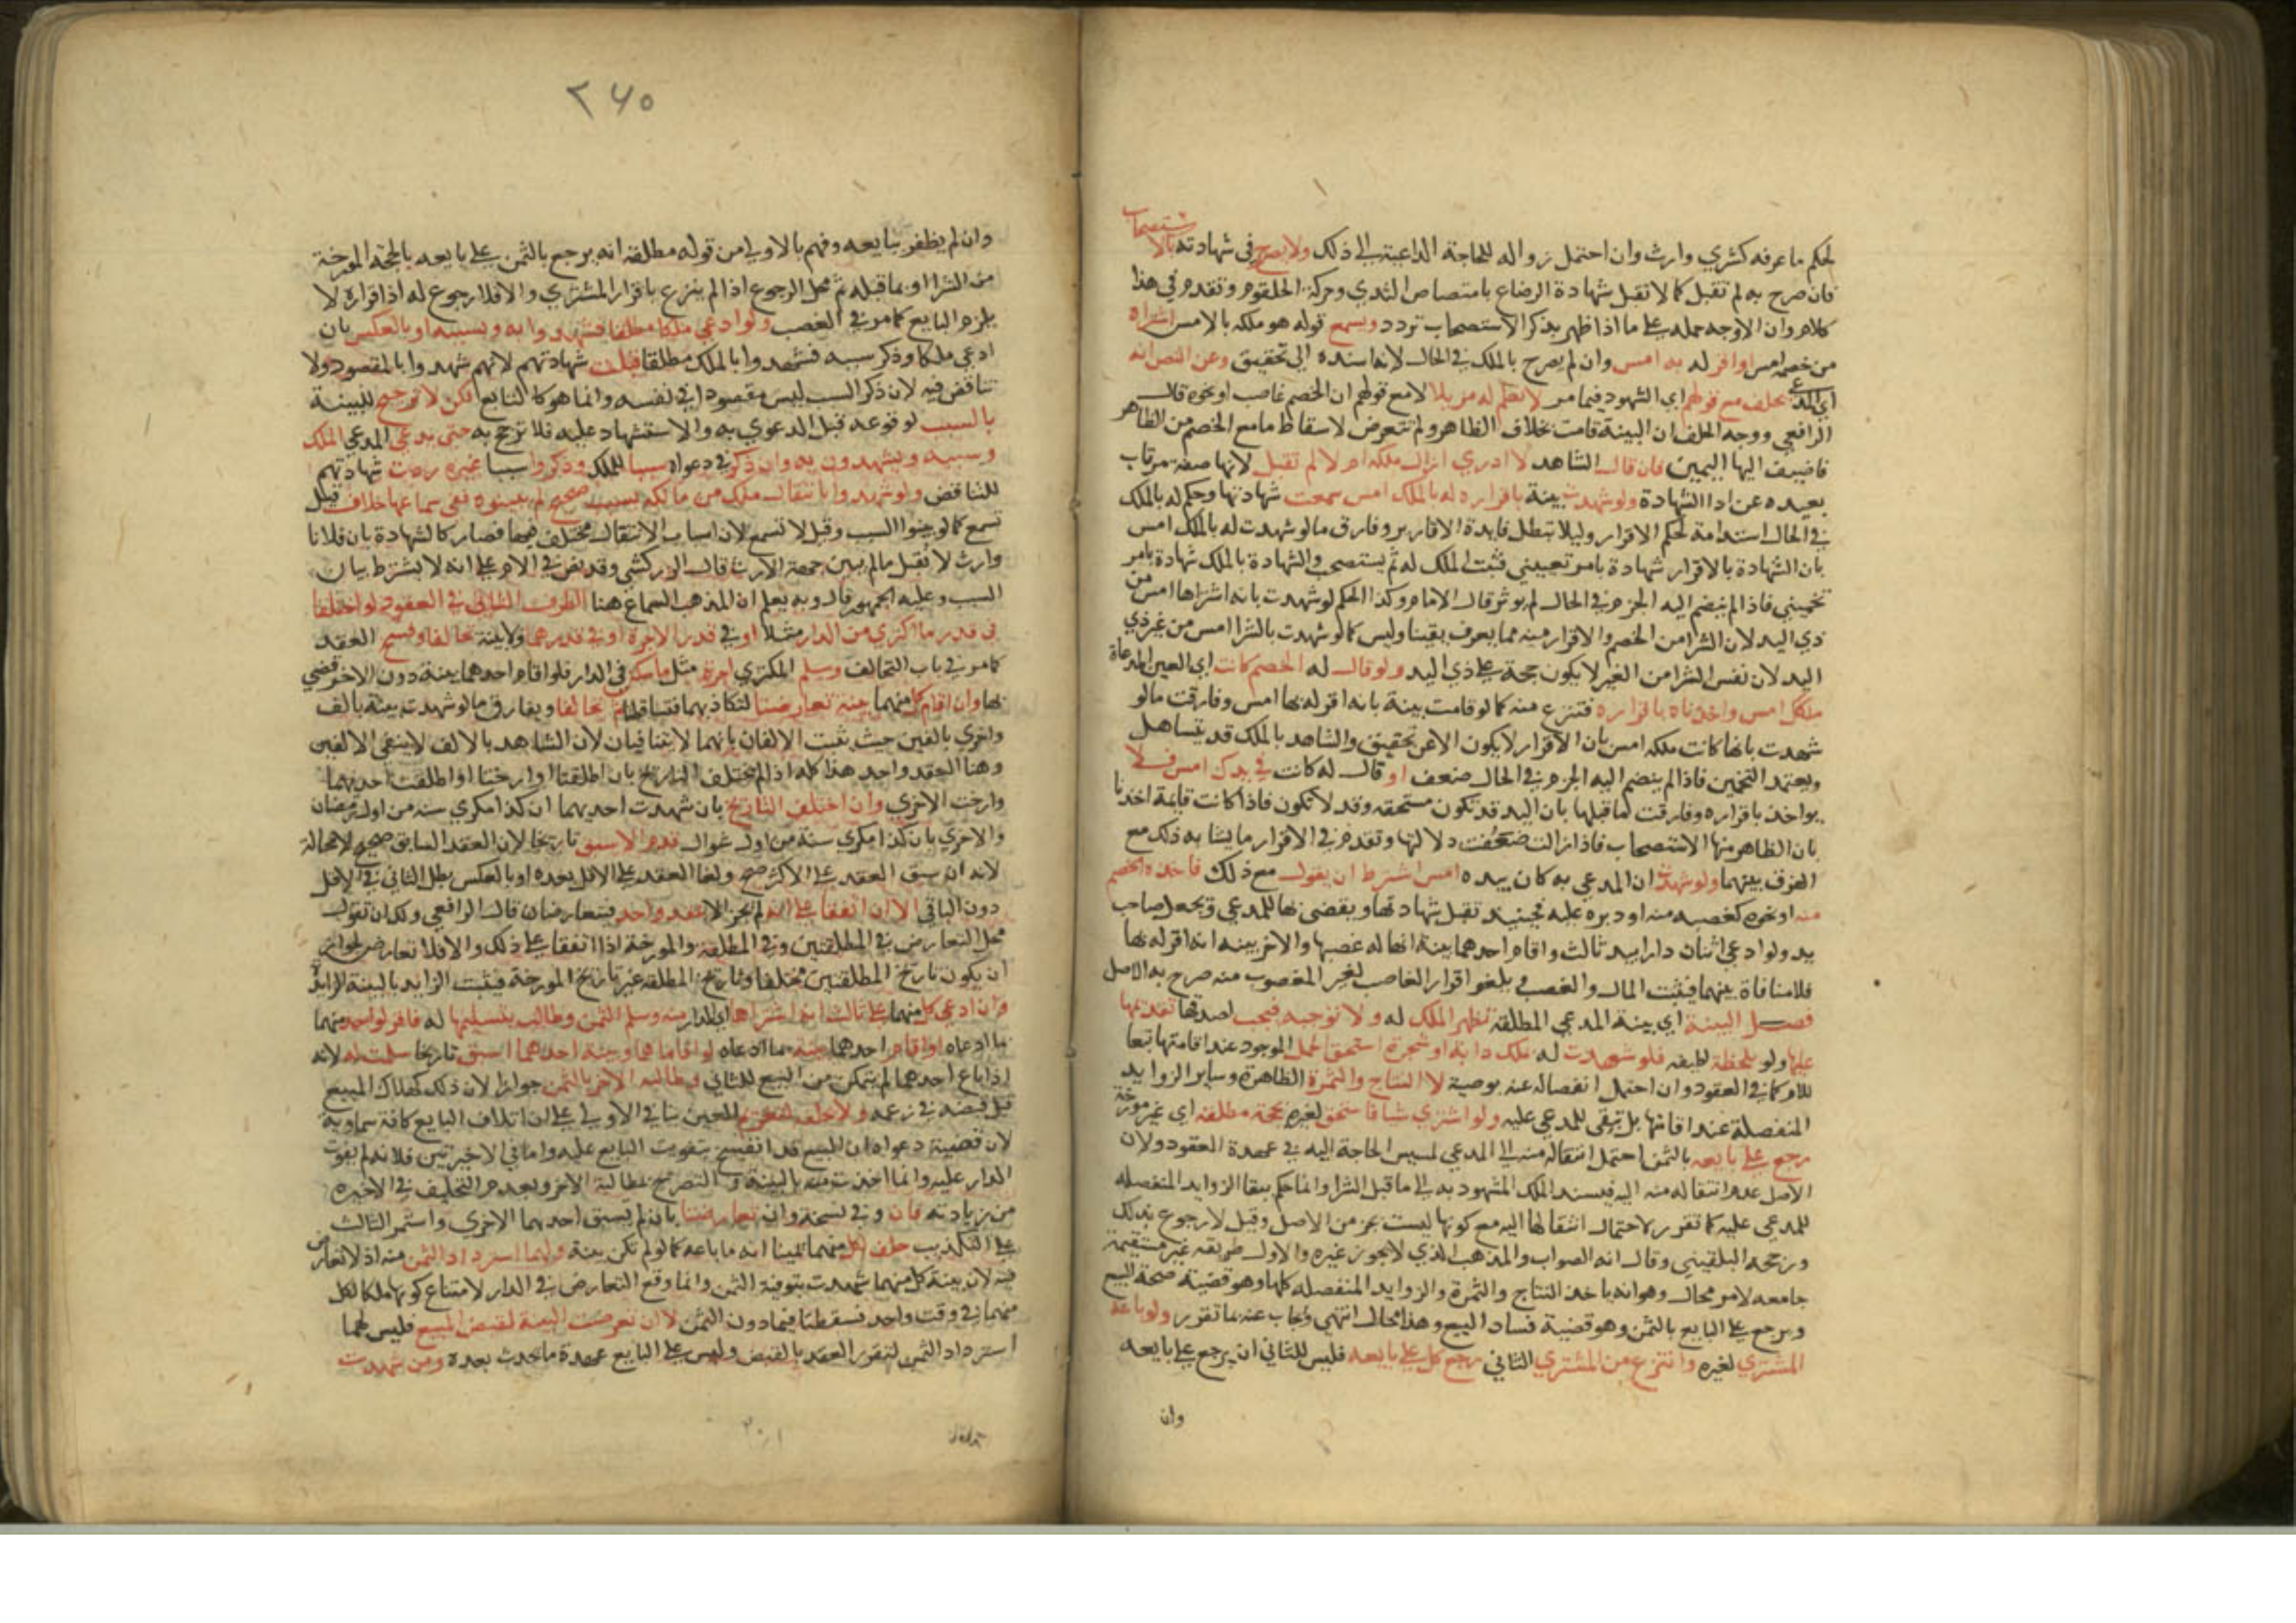 لحكم ما عرفه كشري وارث وان احتمل زواله للحاجة الداعية الى ذلك ولا يصرح في شهادته بالا
ستصحاب
فان صرح به لم تقبل كما لا تقبل شهادة الرضاع بامتصاص الثدي وحركة الحلقوم وتقدم في هذا
كلام وان الاوجه حمله على ما اذا ظهر بذكر الاستصحاب تردد ويسمع قوله هو ملكه بالامس اشتراه
من خصمه امس او اقر له به امس وان لم يصرح بالملك في الحال لانه اسنده الى تحقيق وعن النص انه
اي المدعي يحلف مع قولهم اي الشهود فيما مر لا نعلم له مزيلا لا مع قولهم ان الخصم غاصب او نحوه قال
الرافعي ووجه الحلف ان البينة قامت بخلاف الظاهر ولم تتعرض لاسقاط ما مع الخصم من الظاهر
فاضيف اليها اليمين فان قال الشاهد لا ادري ازال ملكه ام لا لم تقبل لانها صفة مرتاب
بعيده عن ادا الشهادة ولو شهدت بينة باقراره له بالملك امس سمعت شهادتها وحكم له بالملك
في الحال استدامة لحكم الاقرار وليلا تبطل فايدة الاقارير وفارق ما لو شهدت له بالملك امس
بان الشهادة بالاقرار شهادة بامر تعييني فثبت الملك له ثم يستصحب والشهادة بالملك شهادة بامر
تخميني فاذا لم ينضم اليه الجزم في الحال لم يوثر قال الامام وكذا الحكم لو شهدت بانه اشتراها امس من
ذي اليد لان الشرا من الخصم والاقرار منه مما يعرف يقينا وليس كما لو شهدت بالشرا امس من غير ذي
اليد لان نفس الشرا من الغير لا يكون حجة على ذي اليد ولو قال له الخصم كانت اي العين المدعاة
ملكك امس واخذناه باقراره فتنزع منه كما لو قامت بينة بانه اقر له بها امس وفارقت ما لو
شهدت بانها كانت ملكه امس بان الاقرار لا يكون الا عن تحقيق والشاهد بالملك قد يتساهل
ويعتمد التخمين فاذا لم ينضم اليه الجزم في الحال ضعف او قال له كانت في يدك امس فلا
يواخذ باقراره وفارقت ما قبلها بان اليد قد تكون مستحقه وقد لا تكون فاذا كانت قايمة اخذنا
بان الظاهر منها الاستصحاب فاذا زالت ضعفت دلالتها وتقدم في الاقرار ما يشابه ذلك مع
الفرق بينهما ولو شهدت ان المدعي به كان بيده امس اشترط ان يقول مع ذلك فاخذه الخصم
منه او نحوه كغصبه منه او دبره عليه فحينيذ تقبل شهادتها ويقضى بها للمدعي ويجعل صاحب
يد ولو ادعى اثنان دارا بيد ثالث واقام احدهما بينة انها له غصبها والاخر بينه انه اقر له بها
فلا منافاة بينهما فيثبت المال والغصب ويلغوا اقرار الغاصب لغير المغصوب منه صرح به الاصل
فصل البينة اي بينة المدعي المطلقة تظهر الملك له ولا توجبه فيجب لصدقها تقدمه
عليها ولو بلحظة لطيفه فلو شهدت له بملك دابة او شجرة استحق الحمل الموجود عند اقامتها تبعا
للام كما في العقود وان احتمل انفصاله عنه بوصية لا النتاج والثمرة الظاهرة وساير الزوايد
المنفصلة عند اقامتها بل تبقى للمدعي عليه ولو اشترى شيا فاستحق لغيره بحجة مطلقه اي غير مورخة
رجع على بايعه بالثمن احتمل انتقاله منه الى المدعي لمسيس الحاجة اليه في عهدة العقود ولان
الاصل عدم انتقاله منه اليه فيسند الملك المشهود به الى ما قبل الشرا وانما حكم ببقا الزوايد المنفصله
للمدعي عليه كما تقرر لاحتمال انتقالها اليه مع كونها ليست بجزء من الاصل وقيل لا رجوع بذلك
ورجحه البلقيني وقال انه الصواب والمذهب الذي لا يجوز غيره والاول طريقه غير مستقيمة
جامعه لامر محال وهو انه ياخذ النتاج والثمرة والزوايد المنفصله كلها وهو قضية صحة البيع
ويرجع على البايع بالثمن وهو قضية فساد البيع وهذا محال انتهى ويجاب عنه بما تقرر ولو باعه
المشتري لغيره وانتزع من المشتري الثاني رجع كل على بايعه فليس للثاني ان يرجع على بايعه
وان
٢٤٥
وان لم يظفر ببايعه وفهم بالاولى من قوله مطلقة انه يرجع بالثمن على بايعه بالحجة المورخة
من الشرا او بما قبله ثم محل الرجوع اذا لم ينزع باقرار المشتري والا فلا رجوع له اذ اقراره لا
يلزم البايع كما مر في الغصب ولو ادعى ملكا مطلقا فشهدوا به وبسببه او بالعكس بان
ادعى ملكا وذكر سببه فشهدوا بالملك مطلقا قبلت شهادتهم لانهم شهدوا بالمقصود ولا
تناقض فيه لان ذكر السبب ليس مقصودا في نفسه وانما هو كالتابع لكن لا ترجيح للبينة
بالسبب لوقوعه قبل الدعوي به والاستشهاد عليه فلا ترجح به حتى يدعي المدعي الملك
وسببه ويشهدون به وان ذكر في دعواه سببا للملك وذكروا سببا غيره ردت شهادتهم
للتناقض ولو شهدوا بانتقال ملك من مالكه بسبب صحيح لم يبينوه ففي سماعها خلاف قيل
تسمع كما لو بينوا السبب وقيل لا تسمع لان اسباب الانتقال مختلف فيها فصار كالشهادة بان فلانا
وارث لا تقبل ما لم يبين جهة الارث قال الزركشي وقد نص في الام على انه لا يشترط بيان
السبب وعليه الجمهور قال وبه يعلم ان المذهب السماع هنا الطرف الثاني في العقود لو اختلفا
في قدر ما اكتري من الدار مثلا او في قدر الاجرة او في قدرهما ولا بينة تحالفا وفسخ العقد
كما مر في باب التحالف وسلم المكتري اجرة مثل ما سكن في الدار فلو اقام احدهما بينة دون الاخر قضي
بها وان اقام كل منهما بينة تعارضتا لتكاذبهما فتساقطا ثم تحالفا ويفارق ما لو شهدت بينة بالف
واخري بالفين حيث ثبت الالفان بانهما لا يتنافيان لان الشاهد بالالف لا ينفي الالفين
وهنا العقد واحد هذا كله اذا لم يختلف التاريخ بان اطلقتا او ارختا او اطلقت احديهما
وارخت الاخري وان اختلف التاريخ بان شهدت احديهما ان كذا مكري سنه من اول رمضان
والاخري بان كذا مكري سنة من اول شوال قدم الاسبق تاريخا لان العقد السابق صحيح لا محالة
لانه ان سبق العقد على الاكثر صح ولغا العقد على الاقل بعده او بالعكس بطل الثاني في الاقل
دون الباقي الا ان اتفقا على انه لم يجر الا عقد واحد فيتعارضان قال الرافعي ولك ان تقول
محل التعارض في المطلقتين وفي المطلقة والمورخة اذا اتفقا على ذلك والا فلا تعارض لجواز
ان يكون تاريخ المطلقتين مختلفا وتاريخ المطلقة غير تاريخ المورخة فيثبت الزايد بالبينة الزايدة
وان ادعى كل منهما على ثالث انه اشتراها اي الدار منه وسلم الثمن وطالب بتسليمها له فاقر لواحد منهما
بما ادعاه او اقام احدهما بينة بما ادعاه او اقاماهما وبينة احدهما اسبق تاريخا سلمت له لانه
اذا باع احدهما لم يتمكن من البيع للثاني وطالبه الاخر بالثمن جوازا لان ذلك كهلاك المبيع
قبل قبضه في زعمه ولا حلف لتغريم العين بنا في الاولى على ان اتلاف البايع كافة سماوية
لان قضية دعواه ان المبيع قد انفسخ بتفويت البايع عليه واما في الاخيرتين فلانه لم يفوت
الدار عليه وانما اخذت منه بالبينة والتصريح بمطالبة الاخر وبعدم التحليف في الاخيره
من زيادته فان وفي نسخة وان تعارضتا بان لم تسبق احديهما الاخري واستمر الثالث
على التكذيب حلف لكل منهما يمينا انه ما باعه كما لو لم تكن بينة ولهما استرداد الثمن منه اذ لا تعارض
فيه لان بينة كل منهما شهدت بتوفية الثمن وانما وقع التعارض في الدار لامتناع كونها ملكا لكل
منهما في وقت واحد فسقطتا فيها دون الثمن لا ان تعرضت البينة لقبض المبيع فليس لهما
استرداد الثمن لتقرر العقد بالقبض وليس على البايع عهدة ما يحدث بعده ومن شهدت